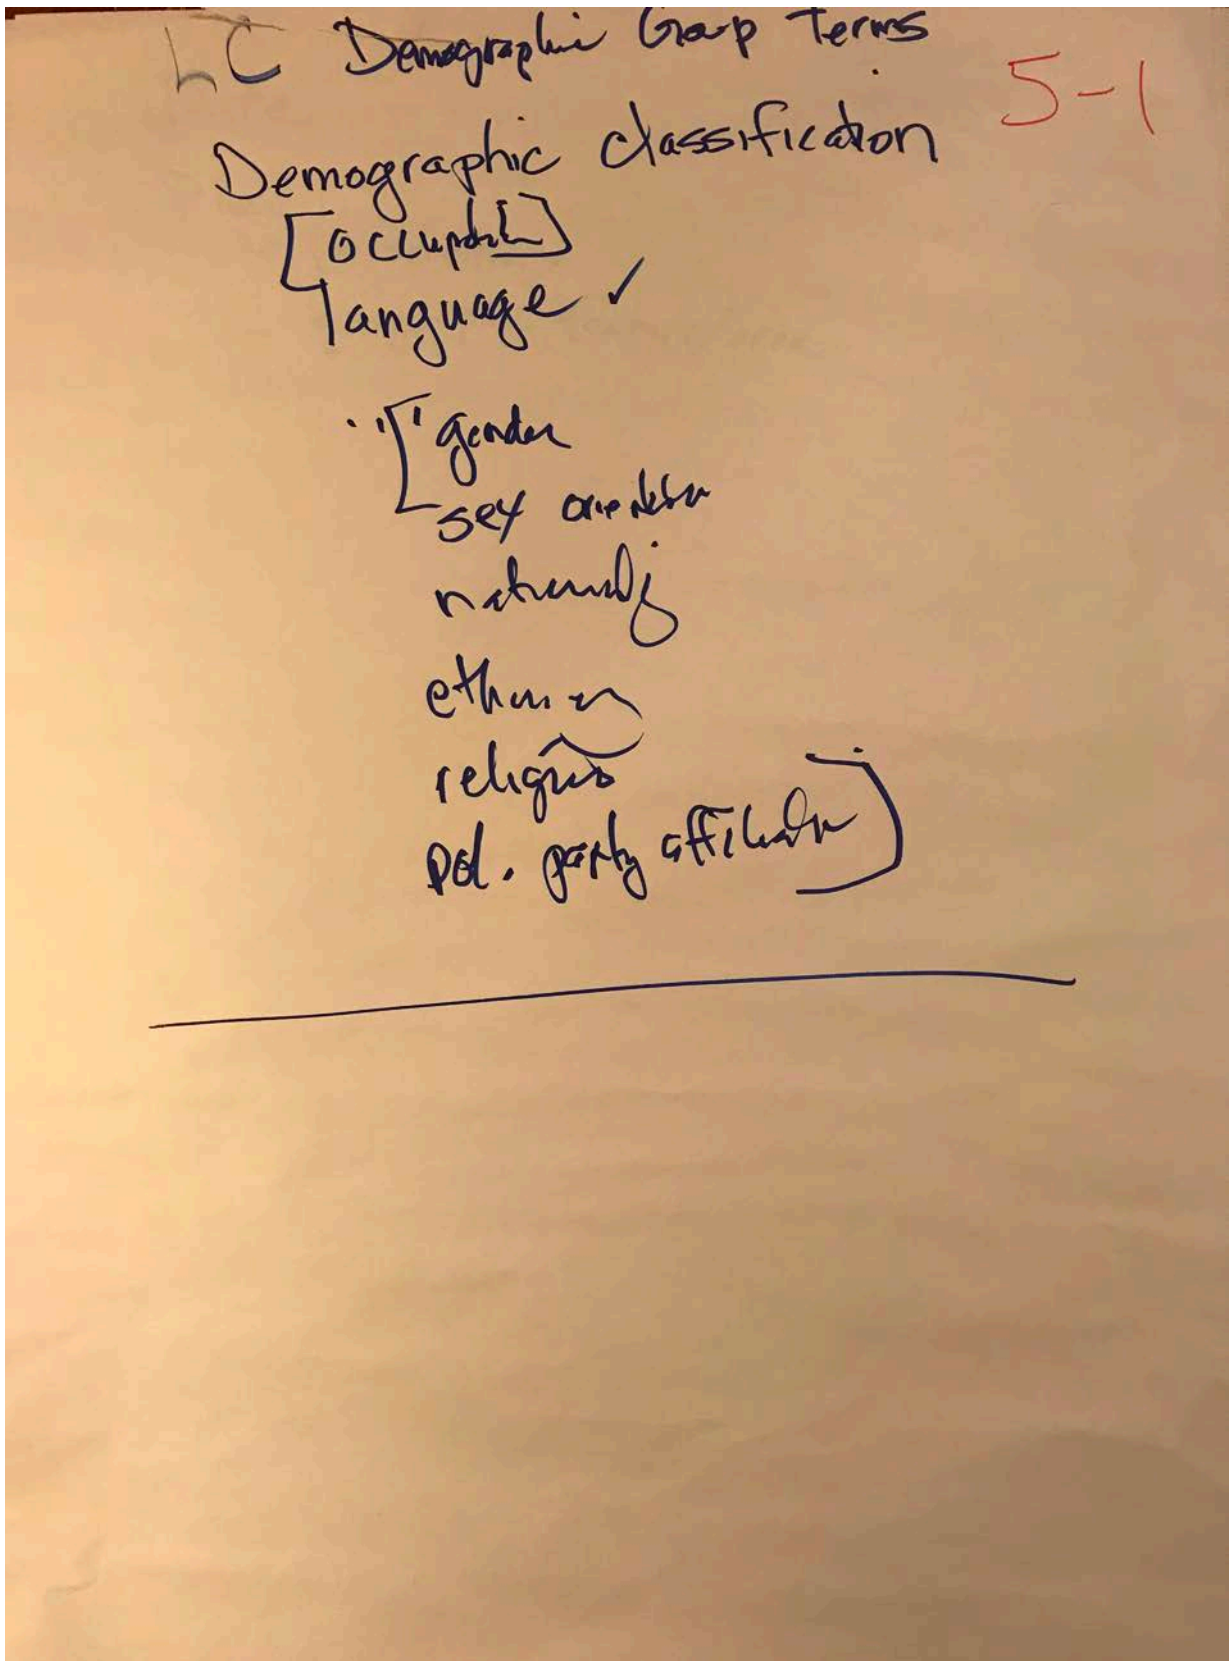 LC Demographic Group Terms
5-1
Demographic classification
[occupation]
language ✓
gender
sex orientation
nationality
ethnicity
religious
pol. party affiliation